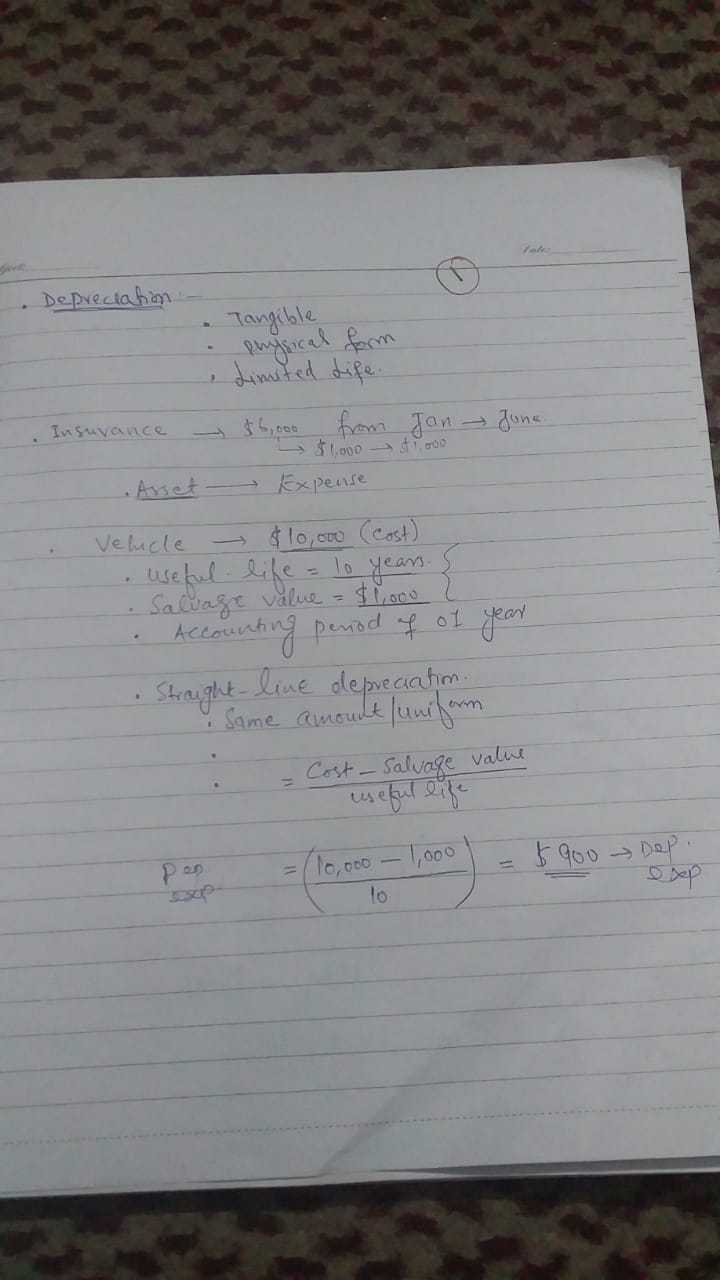 Date:
1
. Depreciation :-
. Tangible
. physical form
. Limited Life.
. Insurance → $6,000 from Jan → June.
↳ $1,000 → $1,000
. Asset → Expense
. Vehicle → $10,000 (cost)
. useful-life = 10 years.
. Salvage value = $1,000
. Accounting period of 01 year
. Straight-line depreciation.
. Same amount/uniform
.
. = Cost – Salvage value
useful life
= (10,000 – 1,000 / 10) = $900 → Dep.
exp